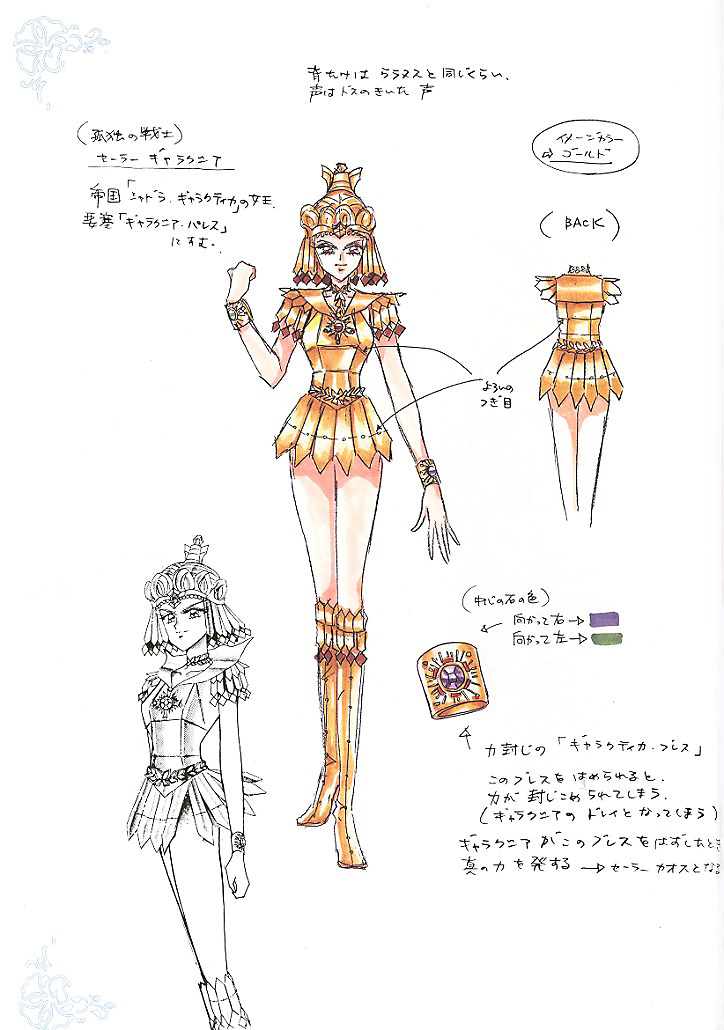 背たけは ウラヌスと同じくらい。
声はドスのきいた 声
(孤独の戦士)
セーラー ギャラクシア
帝国「シャドウ・ギャラクティカ」の女王。
要塞「ギャラクシア・パレス」
にすむ。
イメージカラー
⇨ ゴールド
(BACK)
よろいの
つぎ目
(中心の石の色)
向かって右→
向かって左→
力封じの「ギャラクティカ・ブレス」
このブレスをはめられると、
力が封じこめられてしまう。
(ギャラクシアの ドレイとなってしまう)
ギャラクシアがこのブレスをはずしたとき
真の力を発する →セーラー カオスとなる